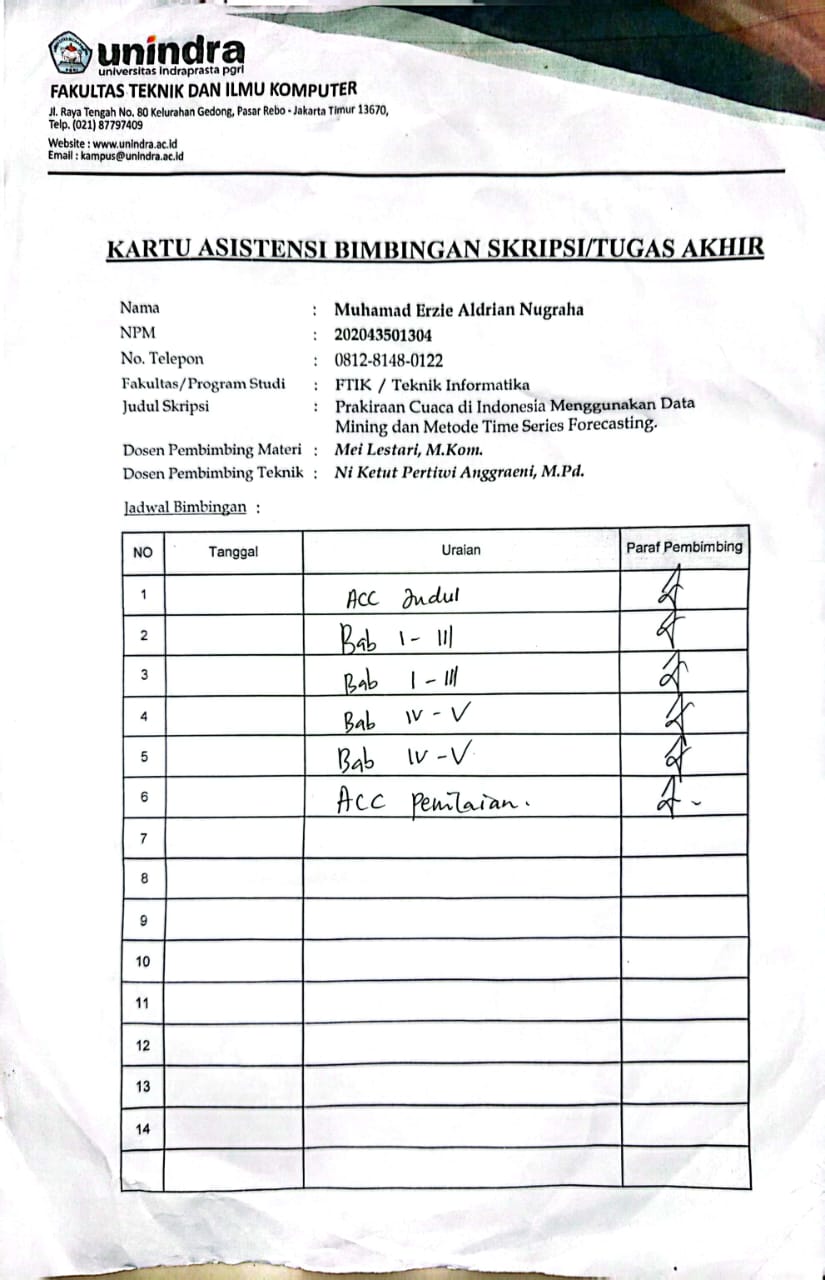 unindra
universitas indraprasta pgri
FAKULTAS TEKNIK DAN ILMU KOMPUTER
Jl. Raya Tengah No. 80 Kelurahan Gedong, Pasar Rebo - Jakarta Timur 13670,
Telp. (021) 87797409
Website : www.unindra.ac.id
Email : kampus@unindra.ac.id
KARTU ASISTENSI BIMBINGAN SKRIPSI/TUGAS AKHIR
Nama : Muhamad Erzie Aldrian Nugraha
NPM : 202043501304
No. Telepon : 0812-8148-0122
Fakultas/Program Studi : FTIK / Teknik Informatika
Judul Skripsi : Prakiraan Cuaca di Indonesia Menggunakan Data
Mining dan Metode Time Series Forecasting.
Dosen Pembimbing Materi : Mei Lestari, M.Kom.
Dosen Pembimbing Teknik : Ni Ketut Pertiwi Anggraeni, M.Pd.
Jadwal Bimbingan :
NO Tanggal Uraian Paraf Pembimbing
1 ACC Judul
2 Bab I - III
3 Bab I - III
4 Bab IV - V
5 Bab IV - V
6 ACC penilaian.
7
8
9
10
11
12
13
14